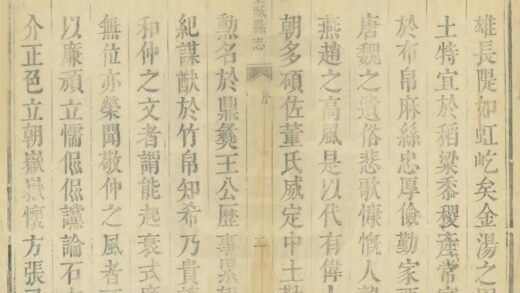 雄長隄如虹屹矣金湯之
土特宜於稻粱黍稷產常
於布帛麻絲忠厚儉勤家
唐魏之遺俗悲歌慷慨人
燕趙之高風是以代有偉
朝多碩佐董氏威定中土
城縣志
序
二
勳名於鼎彝王公歷事累
紀謀猷於竹帛知希乃貴
和仲之文者謂能起衰式
無位亦榮聞敬仲之風者
以廉頑立懦侃侃讜論石
介正色立朝嶽嶽懷方張